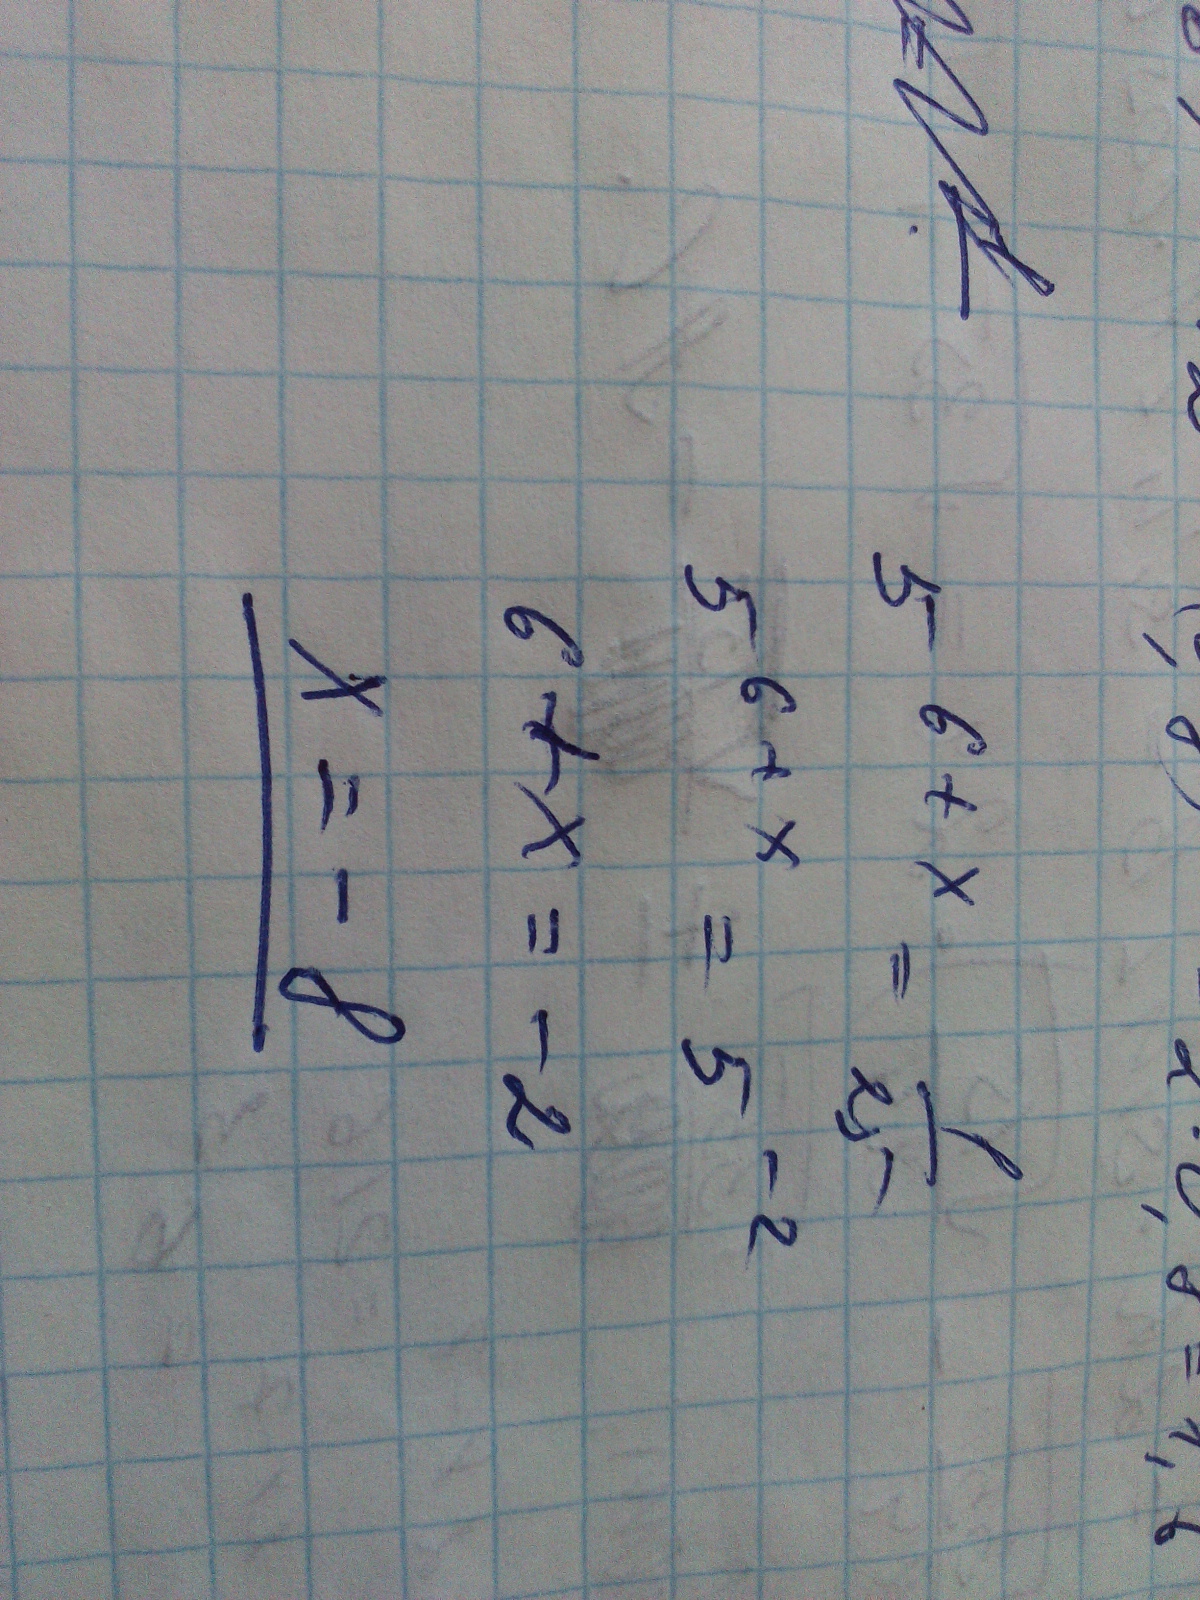 5^(6+x) = 1/25
5^(6+x) = 5^(-2)
6+x = -2
x = -8